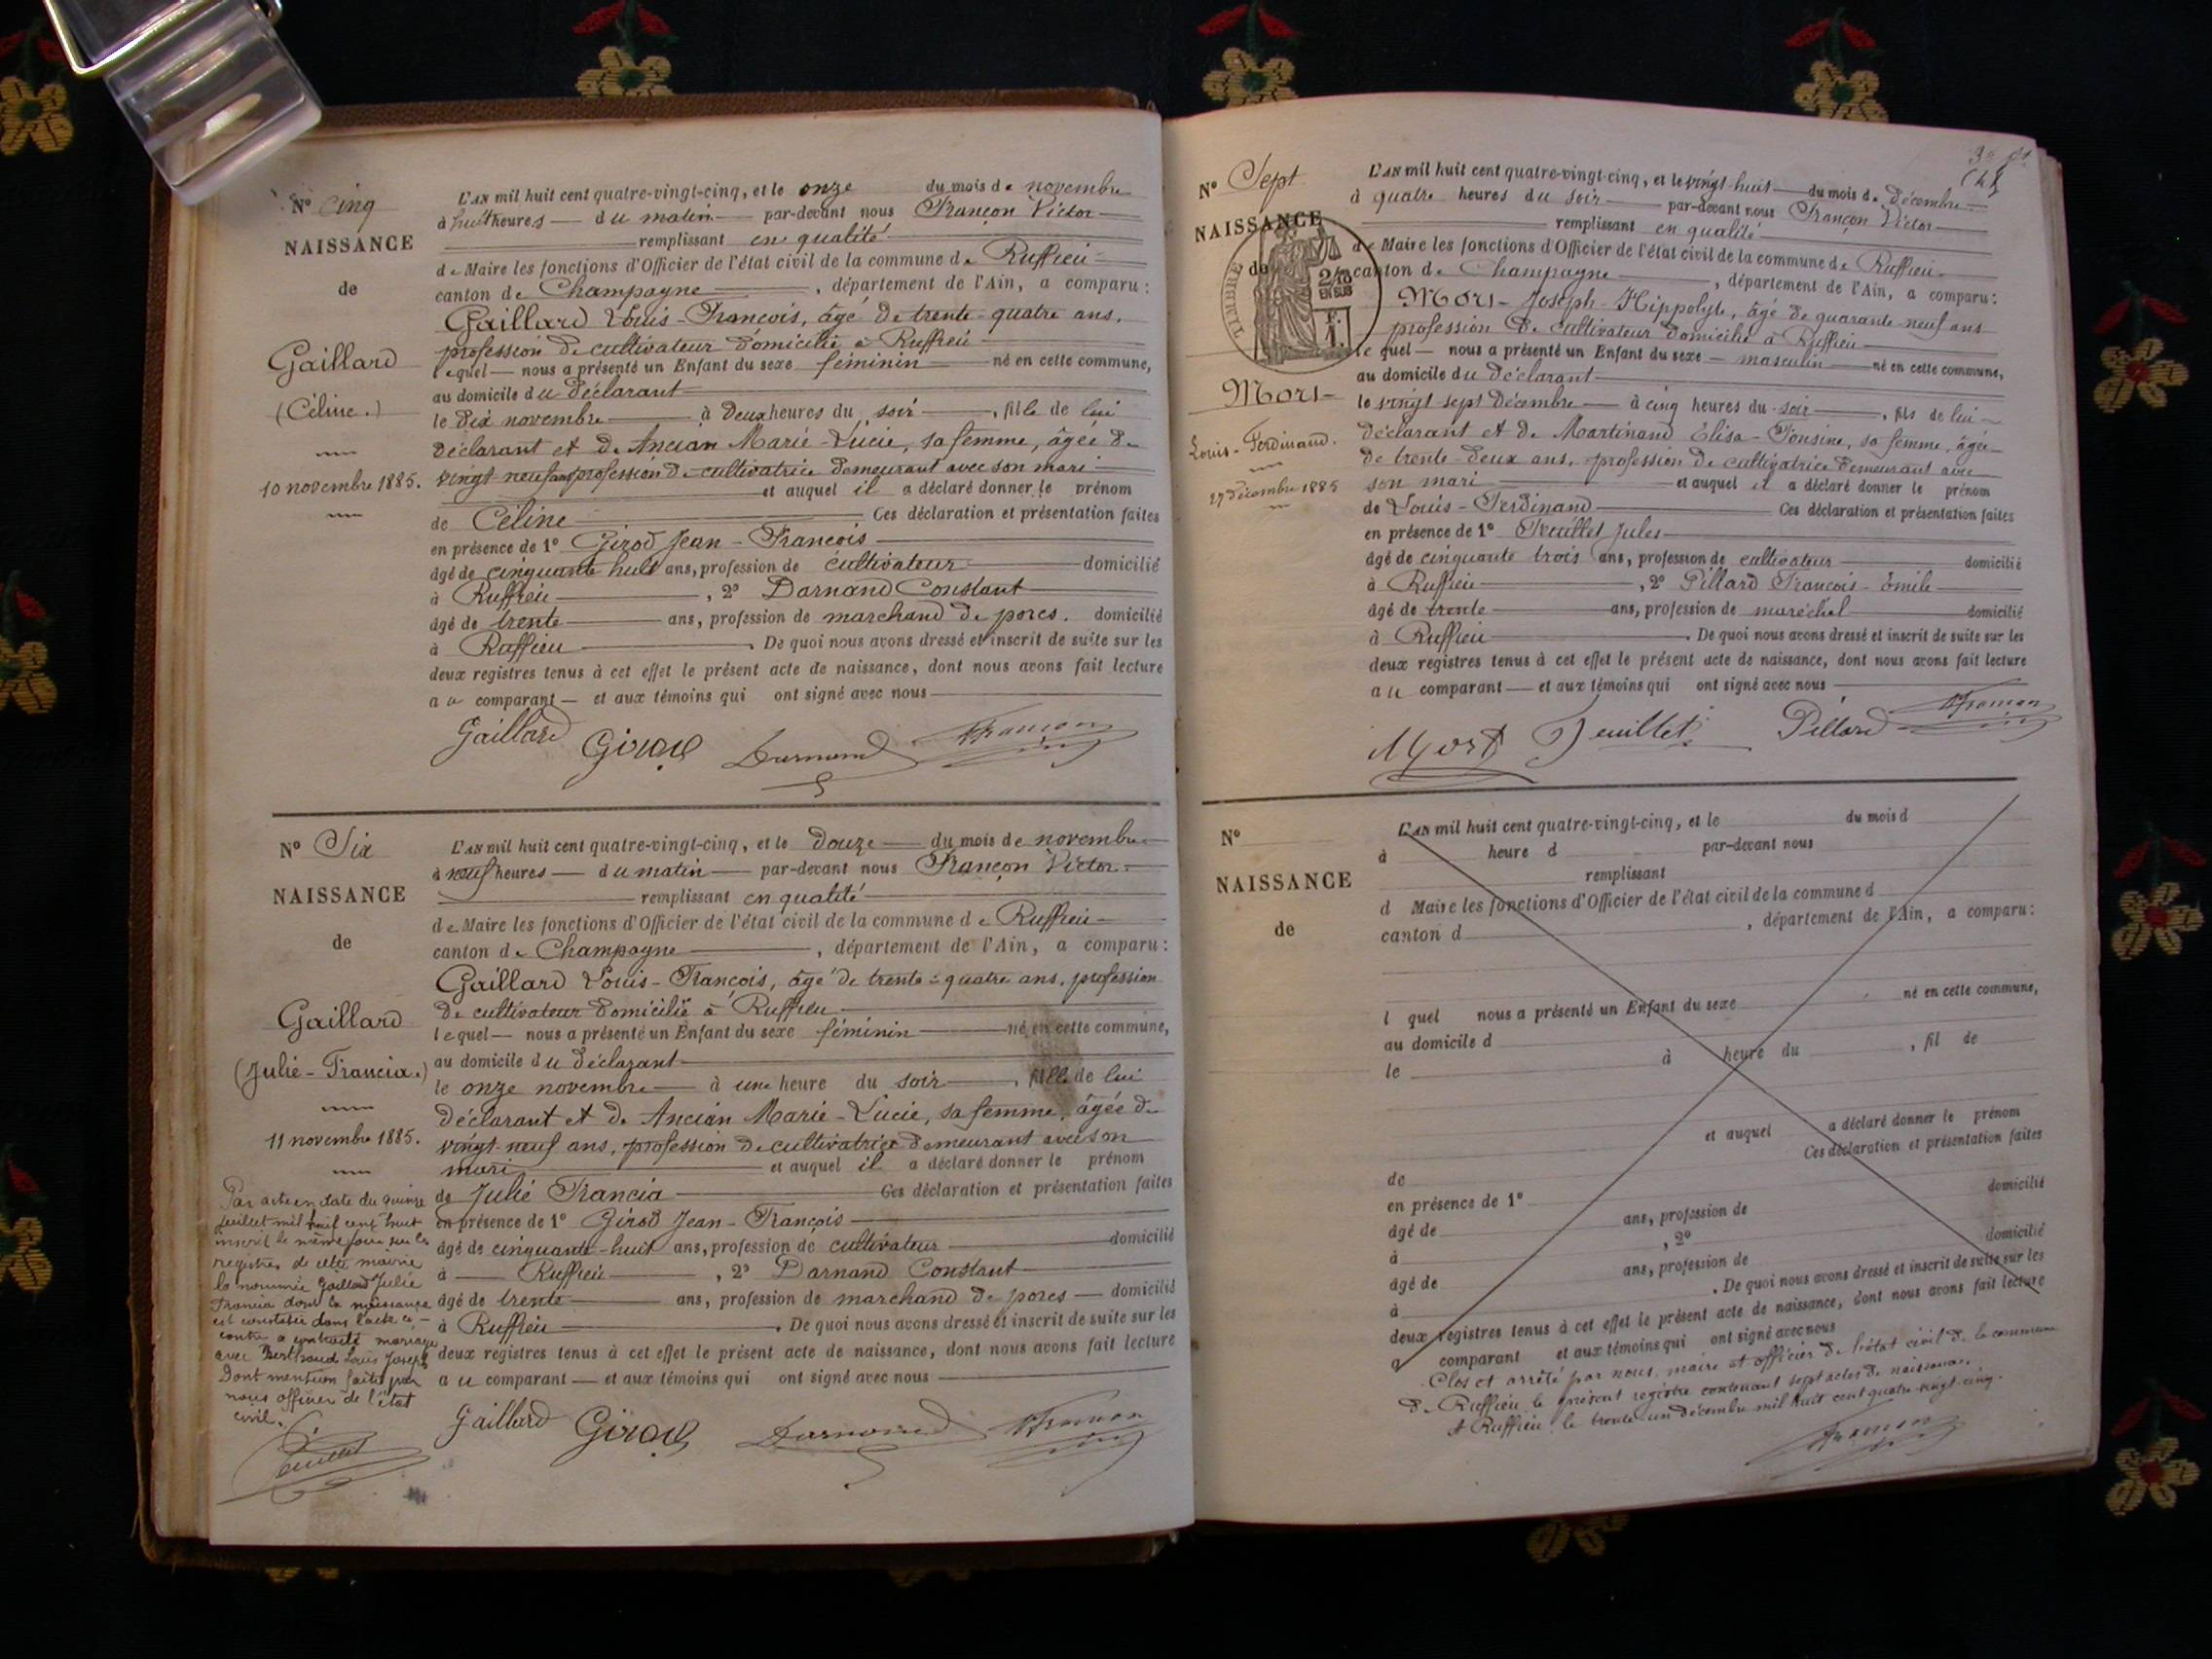 N° Cinq
NAISSANCE
de
Gaillard
(Céline.)
10 novembre 1885.
L'AN mil huit cent quatre-vingt-cinq, et le onze du mois de novembre
à huit heures du matin par-devant nous Françon Victor
remplissant en qualité
de Maire les fonctions d'Officier de l'état civil de la commune de Ruffieu
canton de Champagne, département de l'Ain, a comparu:
Gaillard Louis-François, âgé de trente-quatre ans,
profession de cultivateur domicilié à Ruffieu
lequel nous a présenté un Enfant du sexe féminin né en cette commune,
au domicile du déclarant
le dix novembre à deux heures du soir, fille de lui
déclarant et de Ancian Marie-Lucie, sa femme, âgée de
vingt-neuf ans profession de cultivatrice demeurant avec son mari
et auquel il a déclaré donner le prénom
de Céline Ces déclaration et présentation faites
en présence de 1° Girod Jean-François
âgé de cinquante huit ans, profession de cultivateur domicilié
à Ruffieu, 2° Darnand Constant
âgé de trente ans, profession de marchand de porcs. domicilié
à Ruffieu. De quoi nous avons dressé et inscrit de suite sur les
deux registres tenus à cet effet le présent acte de naissance, dont nous avons fait lecture
au comparant et aux témoins qui ont signé avec nous
Gaillard Girod Darnand Françon
N° Six
NAISSANCE
de
Gaillard
(Julie-Francia.)
11 novembre 1885.
Par acte en date du quinze
juillet mil neuf cent huit
inscrit le même jour sur les
registres de cette mairie
la nommée Gaillard Julie
Francia dont la naissance
est constatée dans l'acte ci-
contre a contracté mariage
avec Berthaud Louis Joseph
Dont mention faite par
nous officier de l'état
civil.
L'AN mil huit cent quatre-vingt-cinq, et le douze du mois de novembre
à neuf heures du matin par-devant nous Françon Victor
remplissant en qualité
de Maire les fonctions d'Officier de l'état civil de la commune de Ruffieu
canton de Champagne, département de l'Ain, a comparu:
Gaillard Louis-François, âgé de trente-quatre ans, profession
de cultivateur domicilié à Ruffieu
lequel nous a présenté un Enfant du sexe féminin né en cette commune,
au domicile du déclarant
le onze novembre à une heure du soir, fille de lui
déclarant et de Ancian Marie-Lucie, sa femme, âgée de
vingt-neuf ans, profession de cultivatrice demeurant avec son
mari et auquel il a déclaré donner le prénom
de Julie Francia Ces déclaration et présentation faites
en présence de 1° Girod Jean-François
âgé de cinquante-huit ans, profession de cultivateur domicilié
à Ruffieu, 2° Darnand Constant
âgé de trente ans, profession de marchand de porcs domicilié
à Ruffieu. De quoi nous avons dressé et inscrit de suite sur les
deux registres tenus à cet effet le présent acte de naissance, dont nous avons fait lecture
au comparant et aux témoins qui ont signé avec nous
Gaillard Girod Darnand Françon
N° Sept
NAISSANCE
de
TIMBRE
2/10
EN SUS
Mort
Louis-Ferdinand.
27 décembre 1885
L'AN mil huit cent quatre-vingt-cinq, et le vingt-huit du mois de décembre
à quatre heures du soir par-devant nous Françon Victor
remplissant en qualité
de Maire les fonctions d'Officier de l'état civil de la commune de Ruffieu
canton de Champagne, département de l'Ain, a comparu:
Mort Joseph-Hippolyte, âgé de quarante-neuf ans
profession de cultivateur domicilié à Ruffieu
lequel nous a présenté un Enfant du sexe masculin né en cette commune,
au domicile du déclarant
le vingt sept décembre à cinq heures du soir, fils de lui
déclarant et de Martinand Elisa-Fonsine, sa femme, âgée
de trente-deux ans, profession de cultivatrice demeurant avec
son mari et auquel il a déclaré donner le prénom
de Louis-Ferdinand Ces déclaration et présentation faites
en présence de 1° Feuillet Jules
âgé de cinquante trois ans, profession de cultivateur domicilié
à Ruffieu, 2° Pillard François-Emile
âgé de trente ans, profession de maréchal domicilié
à Ruffieu. De quoi nous avons dressé et inscrit de suite sur les
deux registres tenus à cet effet le présent acte de naissance, dont nous avons fait lecture
au comparant et aux témoins qui ont signé avec nous
Mort Feuillet Pillard Françon
N°
NAISSANCE
de
L'AN mil huit cent quatre-vingt-cinq, et le du mois d
à heure d par-devant nous
remplissant
d Maire les fonctions d'Officier de l'état civil de la commune d
canton d, département de l'Ain, a comparu:
l quel nous a présenté un Enfant du sexe né en cette commune,
au domicile d
le à heure du, fil de
et auquel a déclaré donner le prénom
de Ces déclaration et présentation faites
en présence de 1°
âgé de ans, profession de domicilié
à, 2°
âgé de ans, profession de domicilié
à. De quoi nous avons dressé et inscrit de suite sur les
deux registres tenus à cet effet le présent acte de naissance, dont nous avons fait lecture
a comparant et aux témoins qui ont signé avec nous
Clos et arrêté par nous, maire et officier de l'état civil de la commune
de Ruffieu le présent registre contenant sept actes de naissance.
A Ruffieu le trente-un décembre mil huit cent quatre-vingt-cinq.
Françon